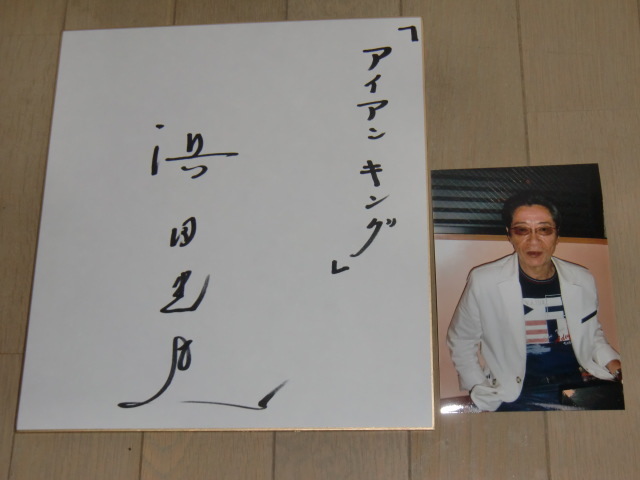 「アイアンキング」
浜田光夫